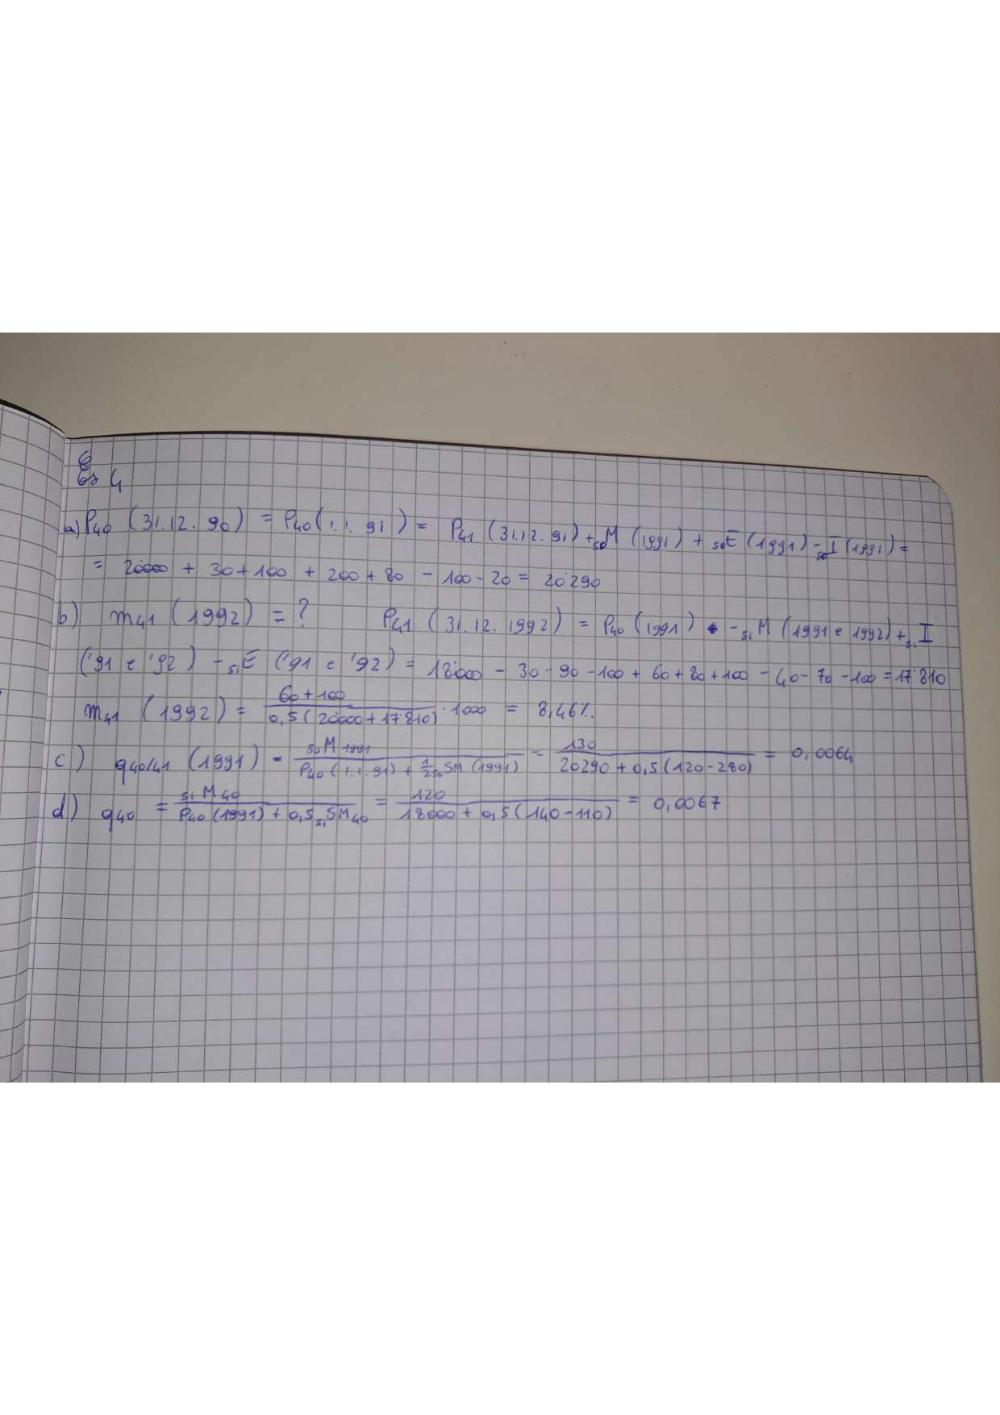 Es 4
a) P40 (31.12.90) = P40 (1.1.91) = P41 (31.12.91) + 50M (1991) + 50E (1991) - 50I (1991) =
= 20000 + 30+100 + 200+80 - 100-20 = 20'290
b) m41 (1992) = ? P41 (31.12.1992) = P40 (1991) - 51M (1991 e 1992) + 51I
('91 e '92) - 51E ('91 e '92) = 18'000 - 30 - 90 - 100 + 60 + 80 + 100 - 40 - 70 - 100 = 17'810
m41 (1992) = 60+100 / 0,5 (20000 + 17'810) · 1000 = 8,46%.
c) q40/41 (1991) = 50M 1991 / P40 (1.1.91) + 1/2 50SM (1991) = 130 / 20290 + 0,5 (120-280) = 0,0064
d) q40 = 51M40 / P40 (1991) + 0,5 51SM40 = 120 / 18000 + 0,5 (140-110) = 0,0067